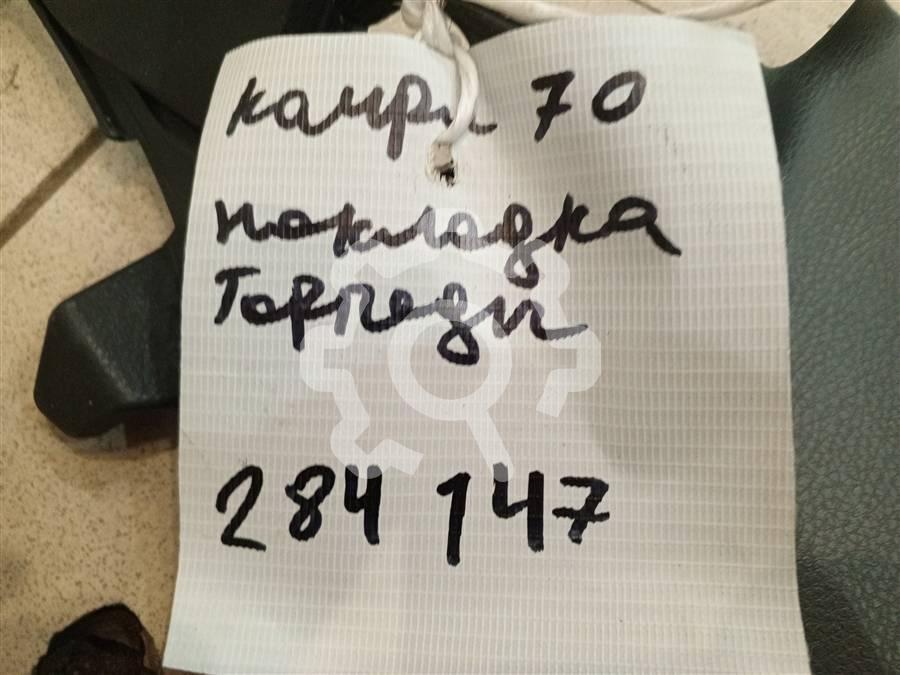 камри 70
накладка
Торпеды
284 147